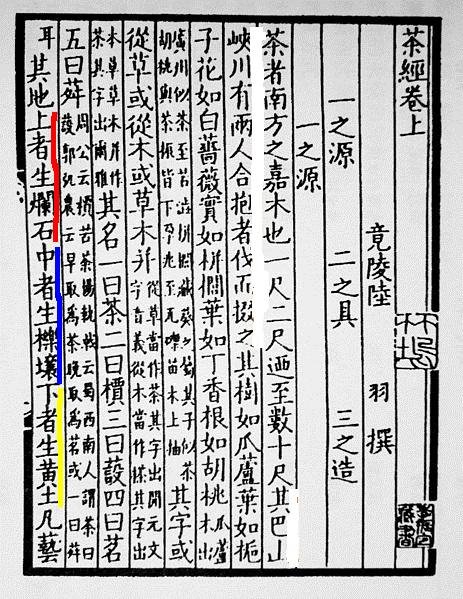 茶經卷上
竟陵陸 羽 撰
一之源 二之具 三之造
一之源
茶者南方之嘉木也一尺二尺迺至數十尺其巴山
峽川有兩人合抱者伐而掇之其樹如瓜蘆葉如梔
子花如白薔薇實如栟櫚葉如丁香根如胡桃 瓜蘆木出
廣州似茶至苦澁栟櫚蒲葵之屬其子似茶
胡桃與茶根皆下孕兆至瓦礫苗木上抽 其字或
從草或從木或草木并 從草當作茶其字出開元文
字音義從木當作㮆其字出
本草草木并作
荼其字出爾雅 其名一曰茶二曰檟三曰蔎四曰茗
五曰荈 周公云檟苦荼揚執戟云蜀西南人謂茶曰
蔎郭弘農云早取為茶晚取為茗或一曰荈
耳 其地上者生爛石中者生櫟壤下者生黄土凡藝